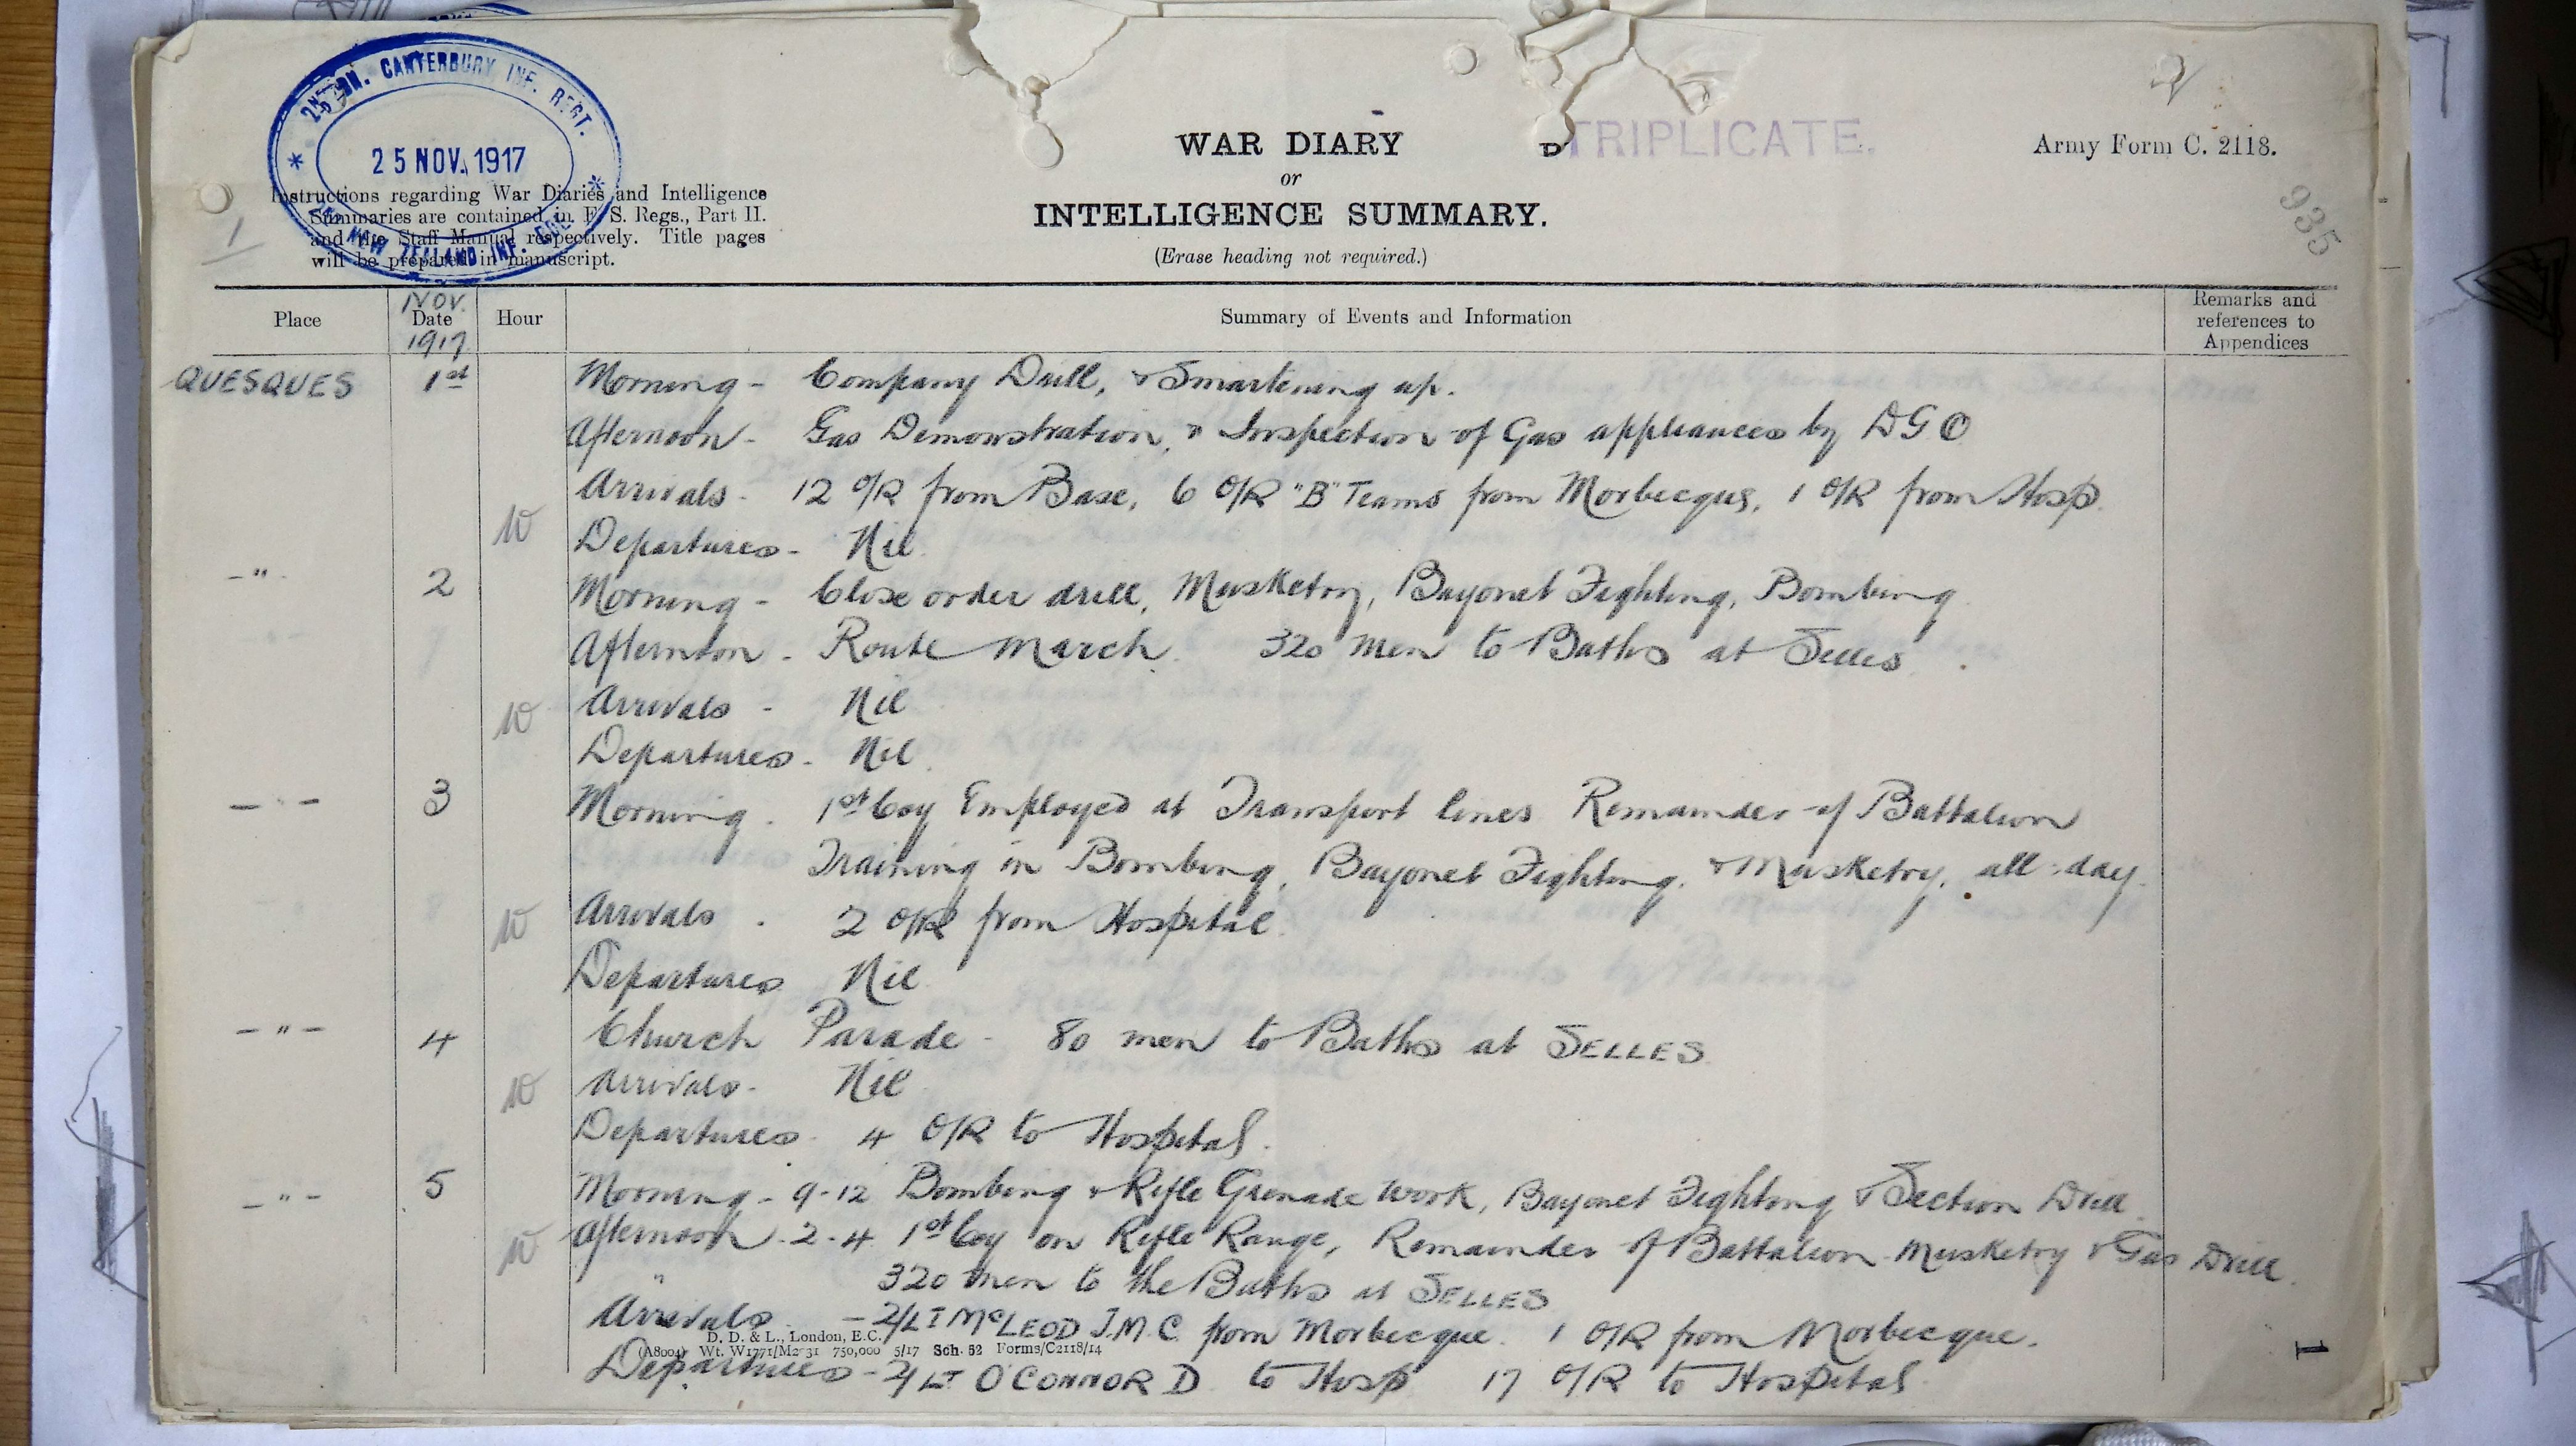 2ND BN. CANTERBURY INF. REGT.
25 NOV. 1917
NEW ZEALAND INF.
WAR DIARY
or
INTELLIGENCE SUMMARY.
(Erase heading not required.)
TRIPLICATE.
Army Form C. 2118.
935
1
Instructions regarding War Diaries and Intelligence
Summaries are contained in F. S. Regs., Part II.
and the Staff Manual respectively. Title pages
will be prepared in manuscript.
Place
Nov. Date 1917
Hour
Summary of Events and Information
Remarks and references to Appendices
QUESQUES 1st Morning - Company Drill, & Smartening up.
Afternoon - Gas Demonstration, & Inspection of Gas appliances by DGO
Arrivals - 12 O/R from Base, 6 O/R "B" Teams from Morbecque, 1 O/R from Hosp.
Departures - Nil.
-"- 2 Morning - Close order drill, Musketry, Bayonet Fighting, Bombing
Afternoon - Route March. 320 men to Baths at Selles.
Arrivals - Nil
Departures - Nil.
-"- 3 Morning - 1st Coy Employed at Transport lines Remainder of Battalion
Training in Bombing, Bayonet Fighting, & Musketry, all day.
Arrivals - 2 O/R from Hospital.
Departures Nil.
-"- 4 Church Parade - 80 men to Baths at SELLES
Arrivals - Nil
Departures - 4 O/R to Hospital.
-"- 5 Morning - 9-12 Bombing & Rifle Grenade work, Bayonet Fighting & Section Drill.
Afternoon - 2-4 1st Coy on Rifle Range, Remainder of Battalion Musketry & Gas Drill.
" 320 men to the Baths at SELLES
Arrivals - 2/LT McLEOD J.M.C. from Morbecque. 1 O/R from Morbecque.
D. D. & L., London, E.C.
(A8004) Wt. W1771/M2031 750,000 5/17 Sch. 52 Forms/C2118/14
Departures - 2/LT O'CONNOR D to Hosp 17 O/R to Hospital.
1